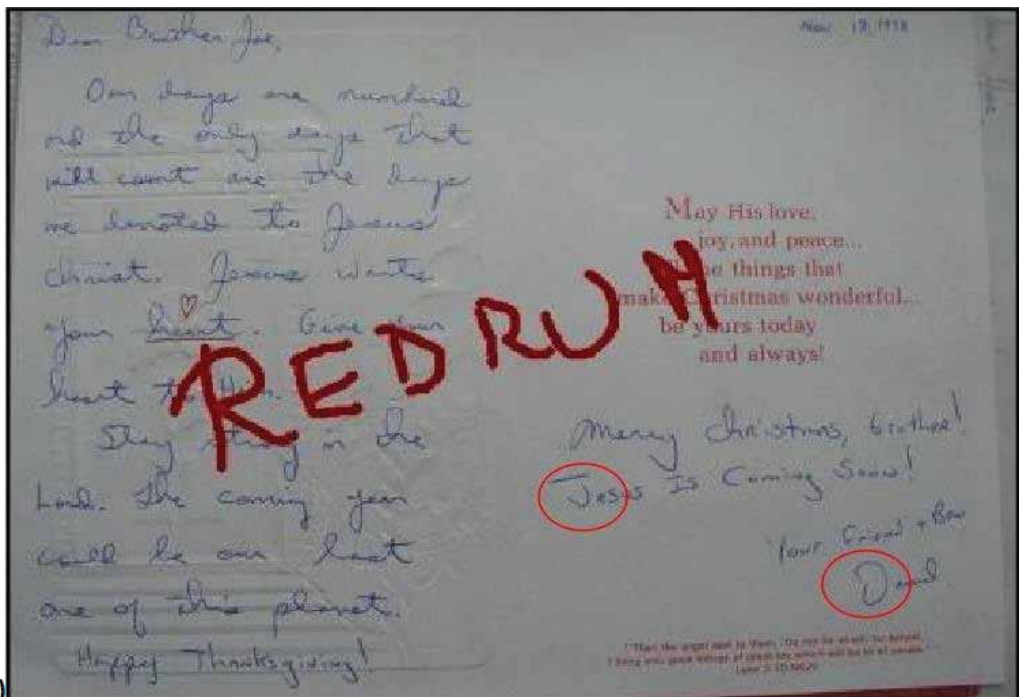 Nov. 19, 1998
Dear Brother Joe,
Our days are numbered
and the only days that
will count are the days
we devoted to Jesus
Christ. Jesus wants
your heart. Give your
heart to Him.
Stay strong in the
Lord. The coming year
could be our last
one of this planet.
Happy Thanksgiving!
REDRUM
May His love,
joy, and peace...
the things that
make Christmas wonderful...
be yours today
and always!
Merry Christmas, brother!
Jesus Is Coming Soon!
Your Friend + Bro
David